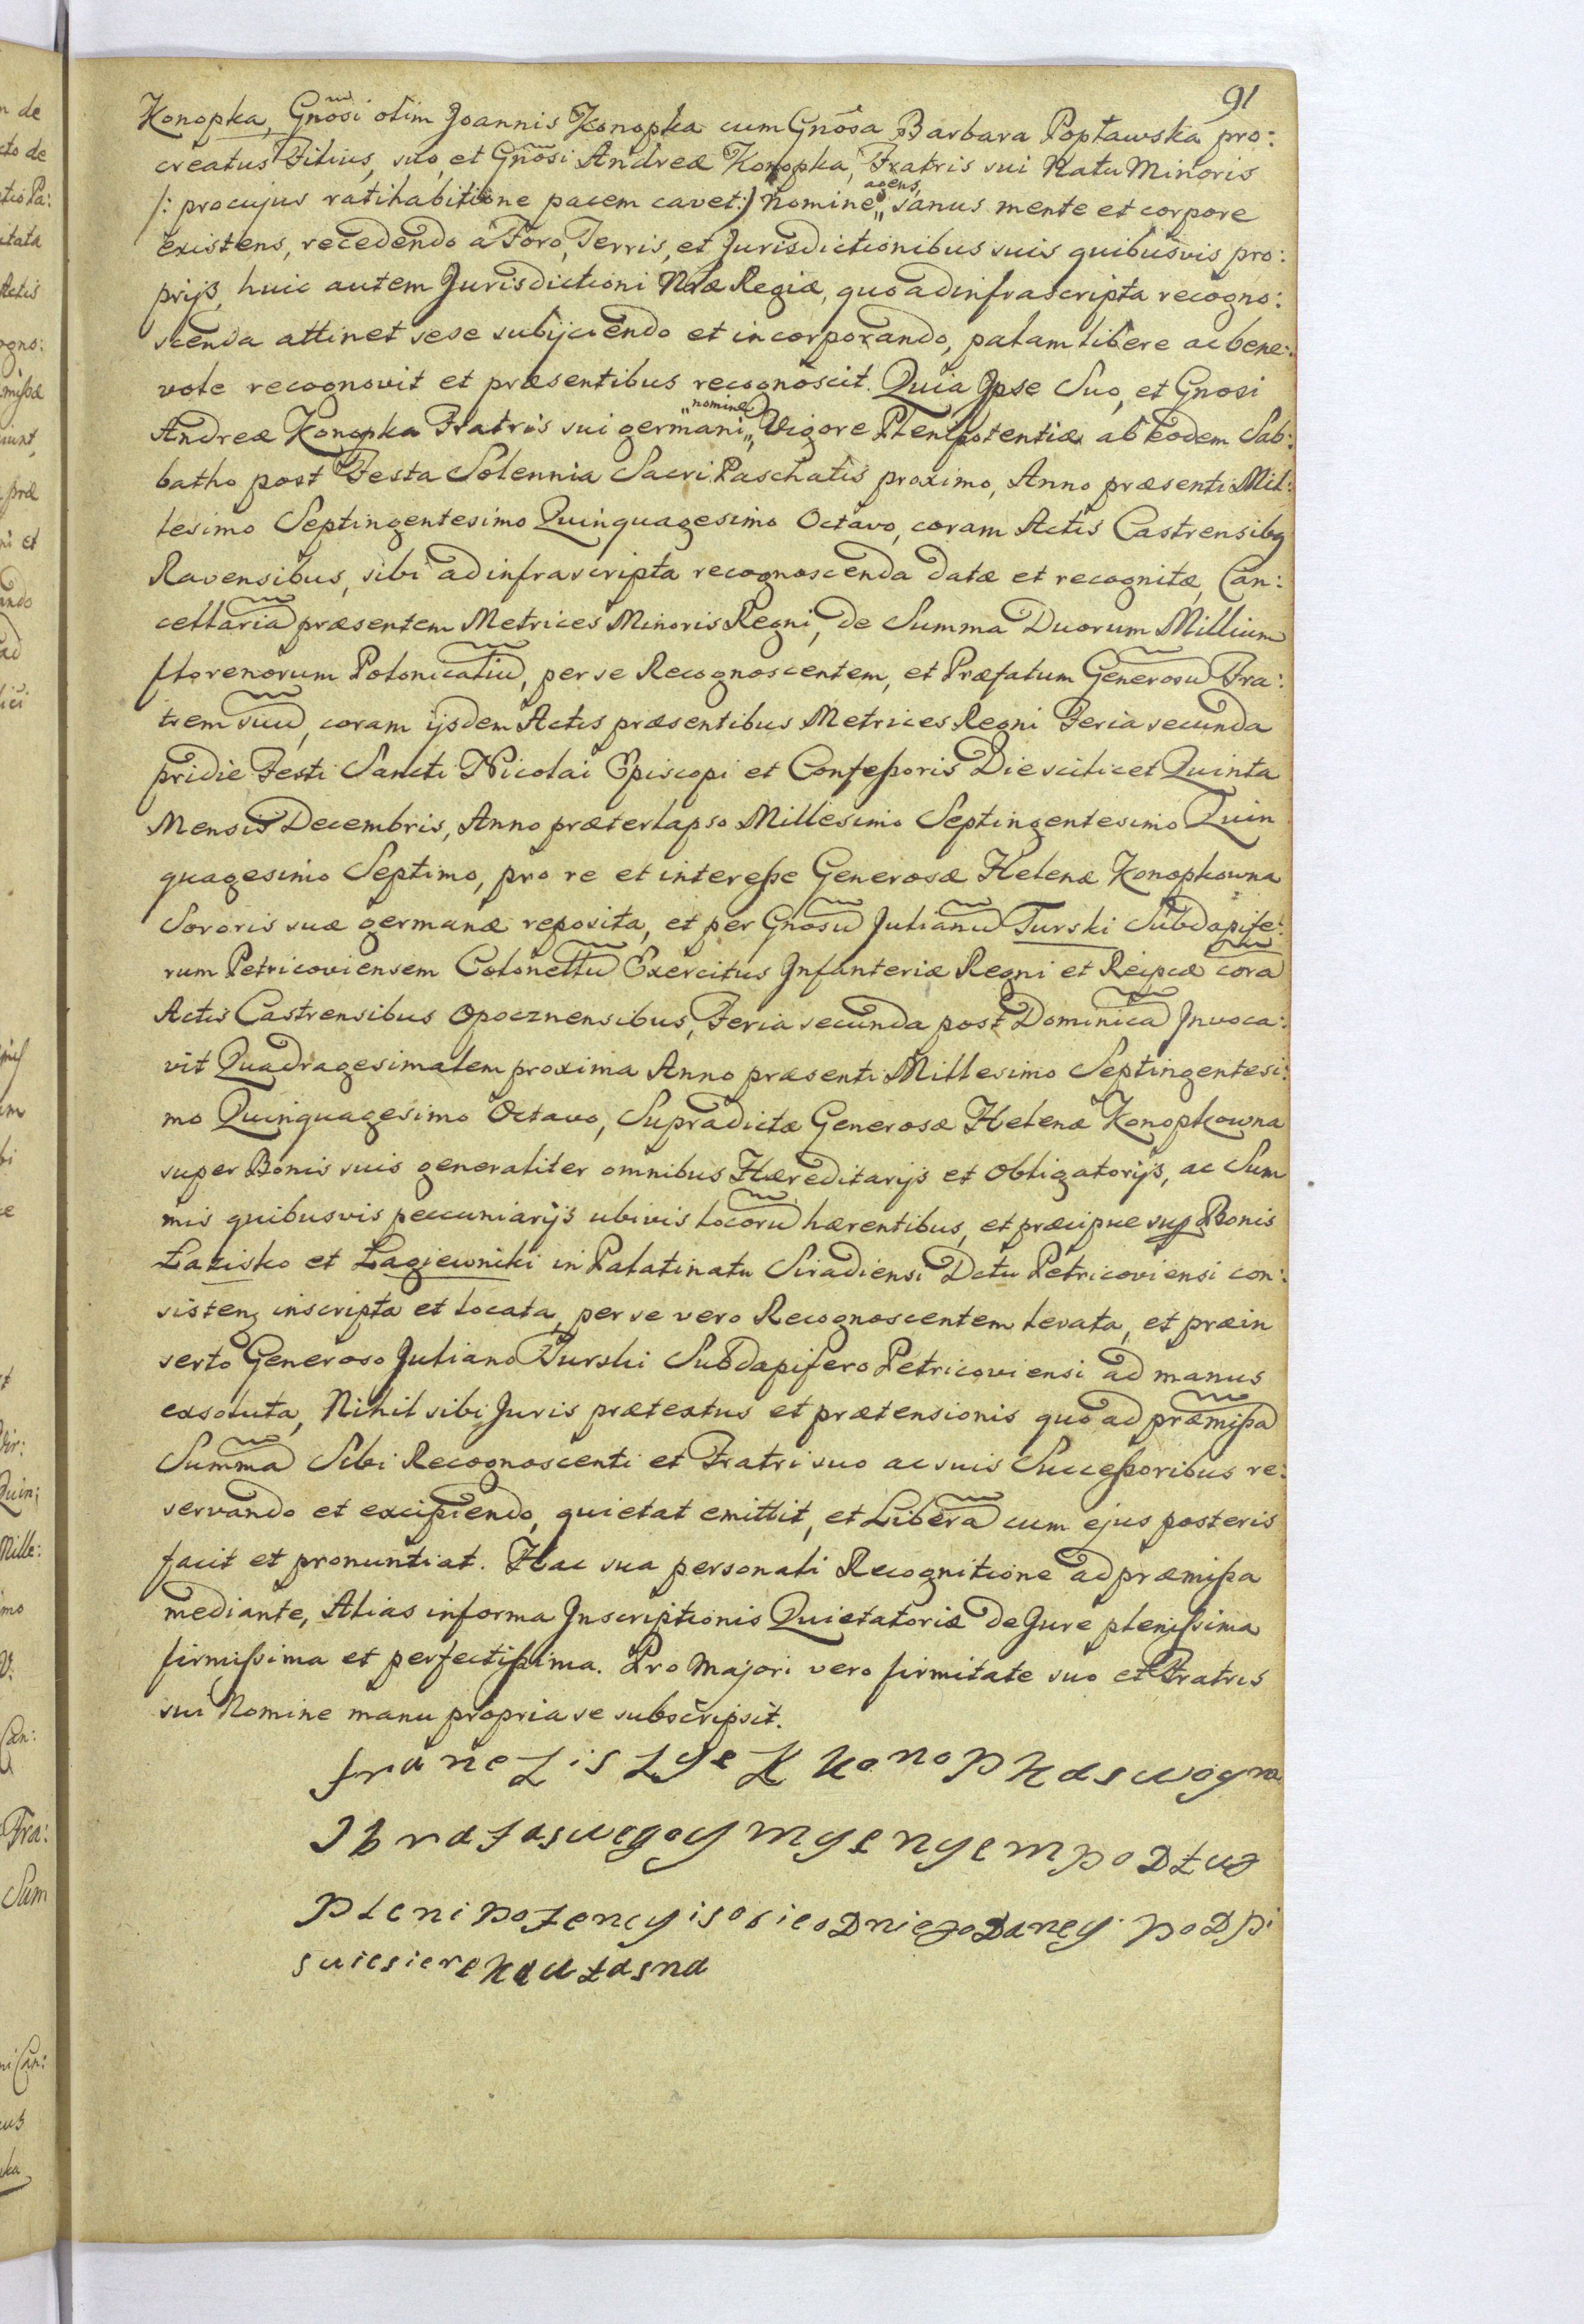 91
Konopka, Gnõsi olim Joannis Konopka cum Gnõsa Barbara Popławska pro:
creatus Filius, suo, et Gnõsi Andreæ Konopka, Fratris sui Natu Minoris
/: pro cujus ratihabitione pacem cavet :/ Nomine „agens, sanus mente et corpore
existens, recedendo a Foro, Terris, et Jurisdictionibus suis quibusvis pro:
prijs, huic autem Jurisdictioni Nrae Regiæ, quo ad infrascripta recogno:
scenda attinet sese subijciendo et incorporando, palam libere ac bene:
vole recognovit et præsentibus recognoscit. Quia Ipse Suo, et Gnosi
Andreæ Konopka Fratris sui germani „nomine„ Vigore Plenipotentiæ ab eodem Sab:
batho post Festa Solennia Sacri Paschatis proximo, Anno præsenti Mil:
lesimo Septingentesimo Quinquagesimo Octavo, coram Actis Castrensibq
Ravensibus, sibi ad infrascripta recognoscenda datæ et recognitæ, Can:
cellariã præsentem Metrices Minoris Regni, de Summa Duorum Millium
florenorum Polonicaliũ, per se Recognoscentem, et Præfatum Generosũ Fra:
trem suũ, coram ijsdem Actis præsentibus Metrices Regni Feria secunda
pridie Festi Sancti Nicolai Episcopi et Confeßoris Die scilicet Quinta
Mensis Decembris, Anno præterlapso Millesimo Septingentesimo Quin
quagesimo Septimo, pro re et intereße Generosæ Helenæ Konopkowna
Sororis suæ germanæ reposita, et per Gnosũ Julianũ Turski Subdapife:
rum Petricoviensem Colonellũ Exercitus Infanteriæ Regni et Reipcæ corã
Actis Castrensibus Opocznensibus, Feria secunda post Dominicã Invoca:
vit Quadragesimalem proxima Anno præsenti Millesimo Septingentesi:
mo Quinquagesimo Octavo, Supradictæ Generosæ Helenæ Konopkowna
super Bonis suis generaliter omnibus Hæreditarijs et Obligatorijs, ac Sum
mis quibusvis peccuniarijs ubivis locorũ hærentibus, et præcipue sup Bonis
Łazisko et Łagiewniki in Palatinatu Siradiensi Dctu Petricoviensi con:
sisten, inscripta et locata, per se vero Recognoscentem levata, et præin
serto Generoso Juliano Turski Subdapifero Petricoviensi ad manus
exsoluta, Nihil sibi Juris prætextus et prætensionis quo ad præmißã
Summã Sibi Recognoscenti et Fratri suo ac suis Succeßoribus re:
servando et excipiendo, quietat emittit, et Liberã cum ejus posteris
facit et pronuntiat. Hac sua personali Recognitione ad præmißa
mediante, Alias in forma Inscriptionis Quietatoriæ de Jure plenißima
firmißima et perfectißima. Pro Majori vero firmitate suo et Fratris
sui Nomine manu propria se subscripsit.
franciszek konopka swoym
I brata swegoy myenyem podług
plenipotencyi sobie od niego daney podpi
suie sie ręką własną